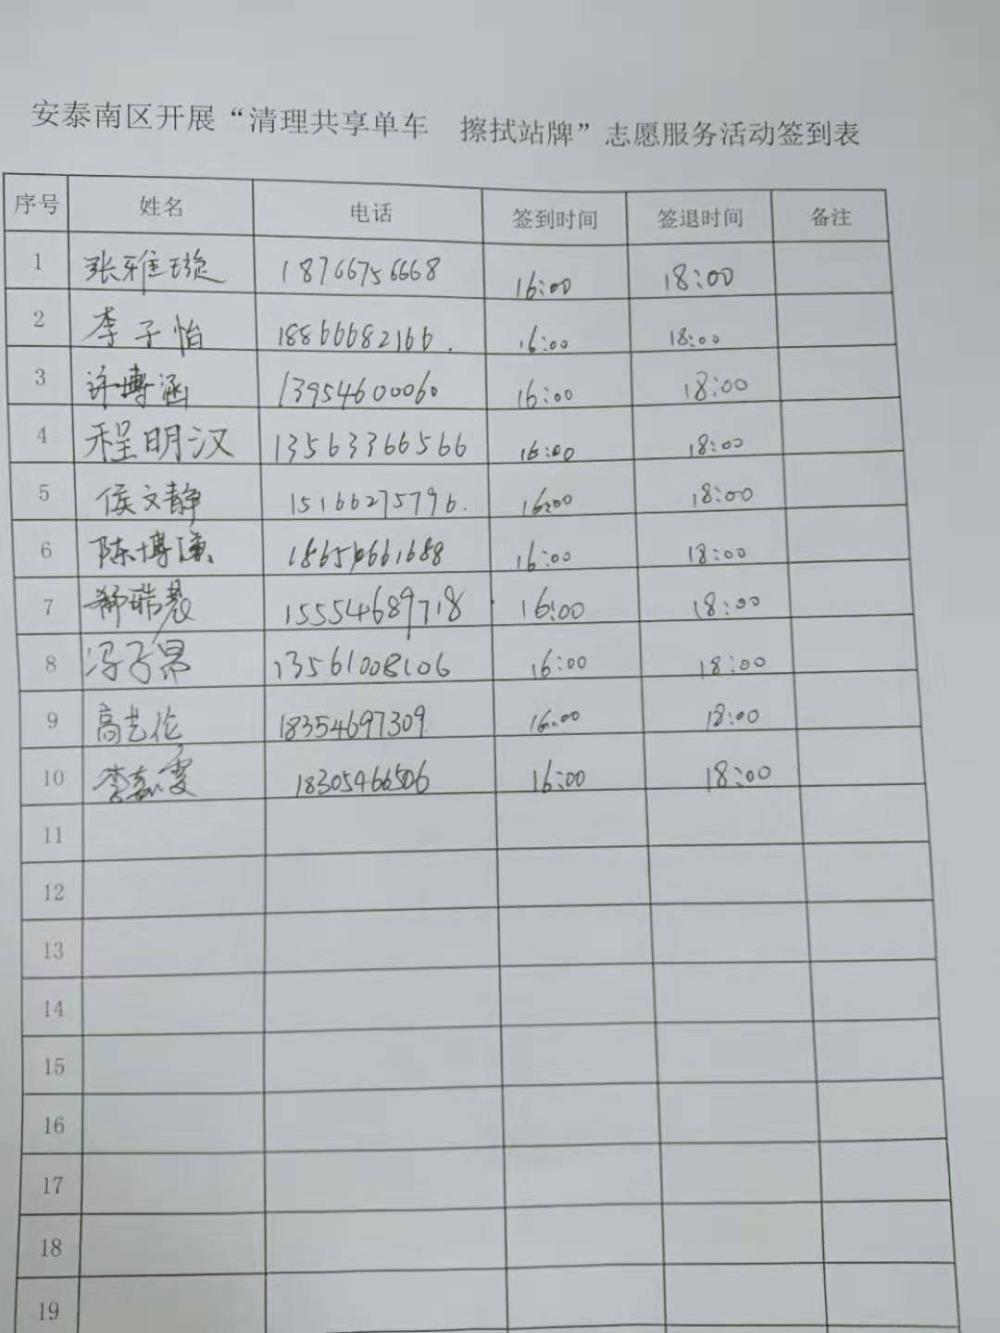 安泰南区开展“清理共享单车 擦拭站牌”志愿服务活动签到表
序号 姓名 电话 签到时间 签退时间 备注
1 张雅璇 18766756668 16:00 18:00
2 李子怡 18866682166. 16:00 18:00
3 许博涵 13954600060 16:00 18:00
4 程明汉 13563366566 16:00 18:00
5 侯文静 15166275796. 16:00 18:00
6 陈博谦 16:00 18:00
7 15554689718 16:00 18:00
8 冯子昂 13561008106 16:00 18:00
9 高艺伦 18354697309 16:00 18:00
10 李嘉雯 18305466506 16:00 18:00
11
12
13
14
15
16
17
18
19